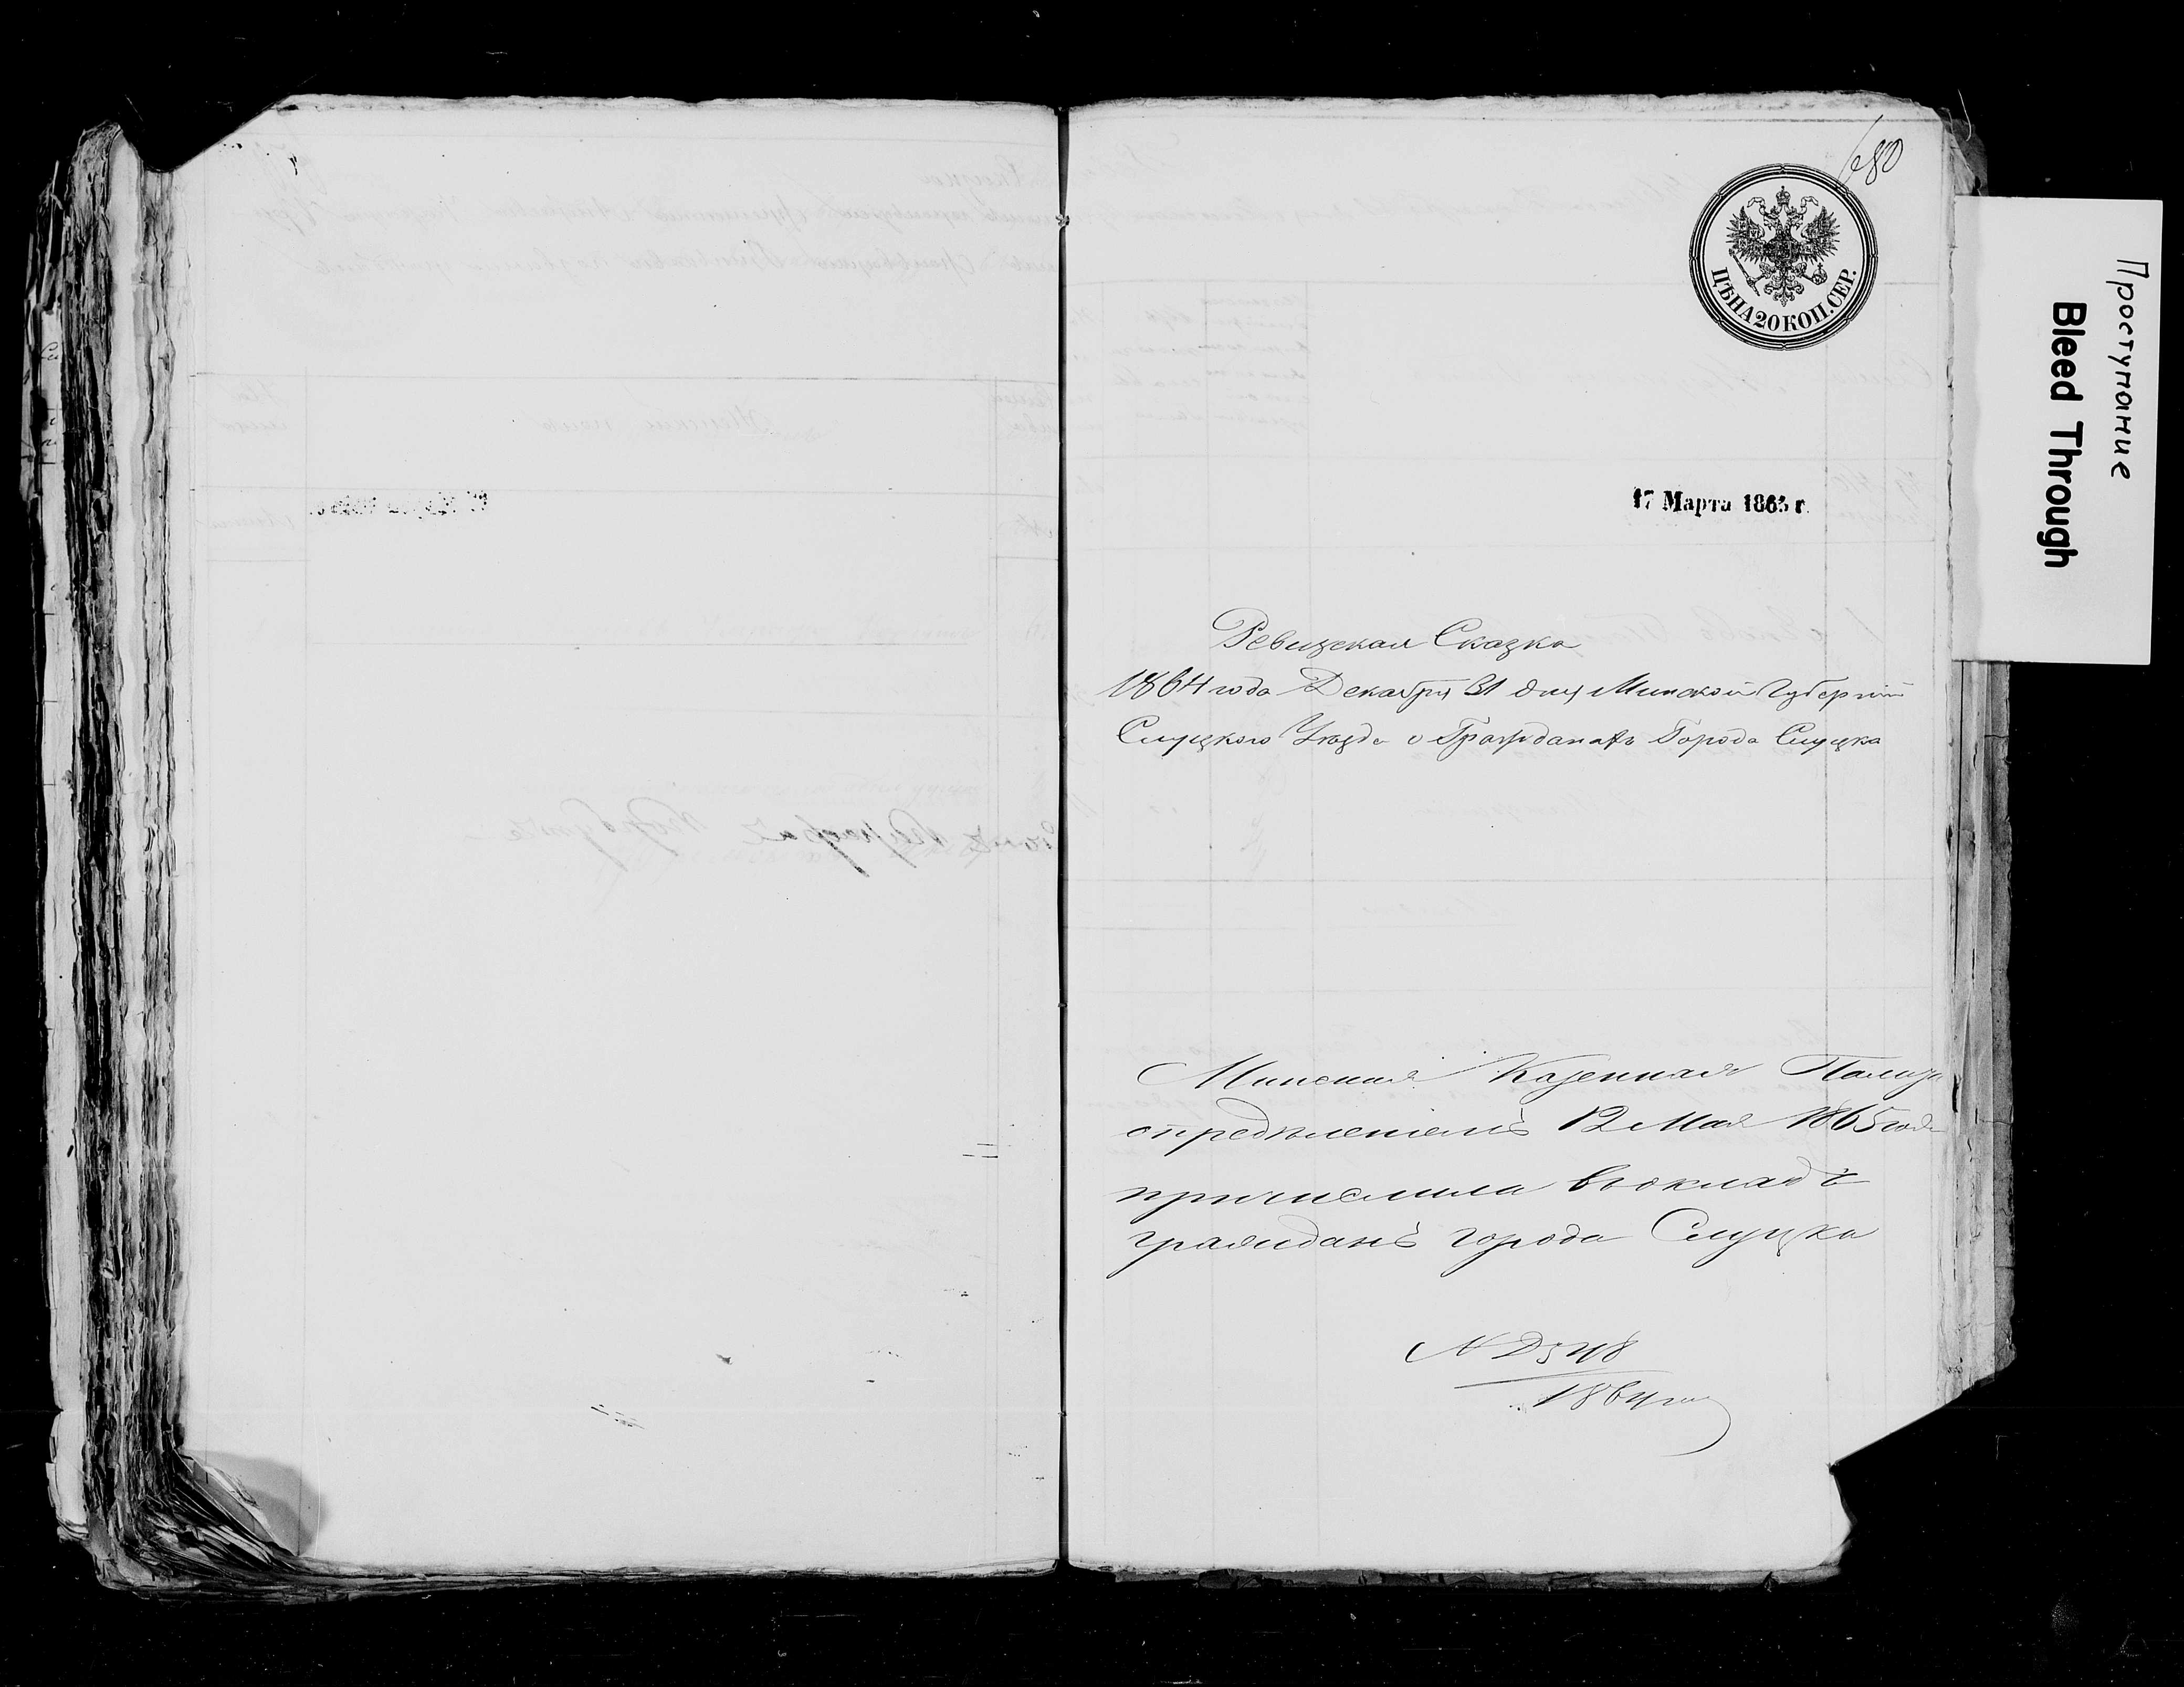 680
ЦѢНА 20 КОП. СЕР.
Проступание
Bleed Through
17 Марта 1865 г.
Ревизская Сказка
1864 года Декабря 31 дня Минской Губерніи
Слуцкого Уѣзда о Гражданахъ Города Слуцка
Минская Казенная Палата
опредѣленіемъ 12 Мая 1865 года
причислила въ окладъ
гражданъ города Слуцка
1864 года